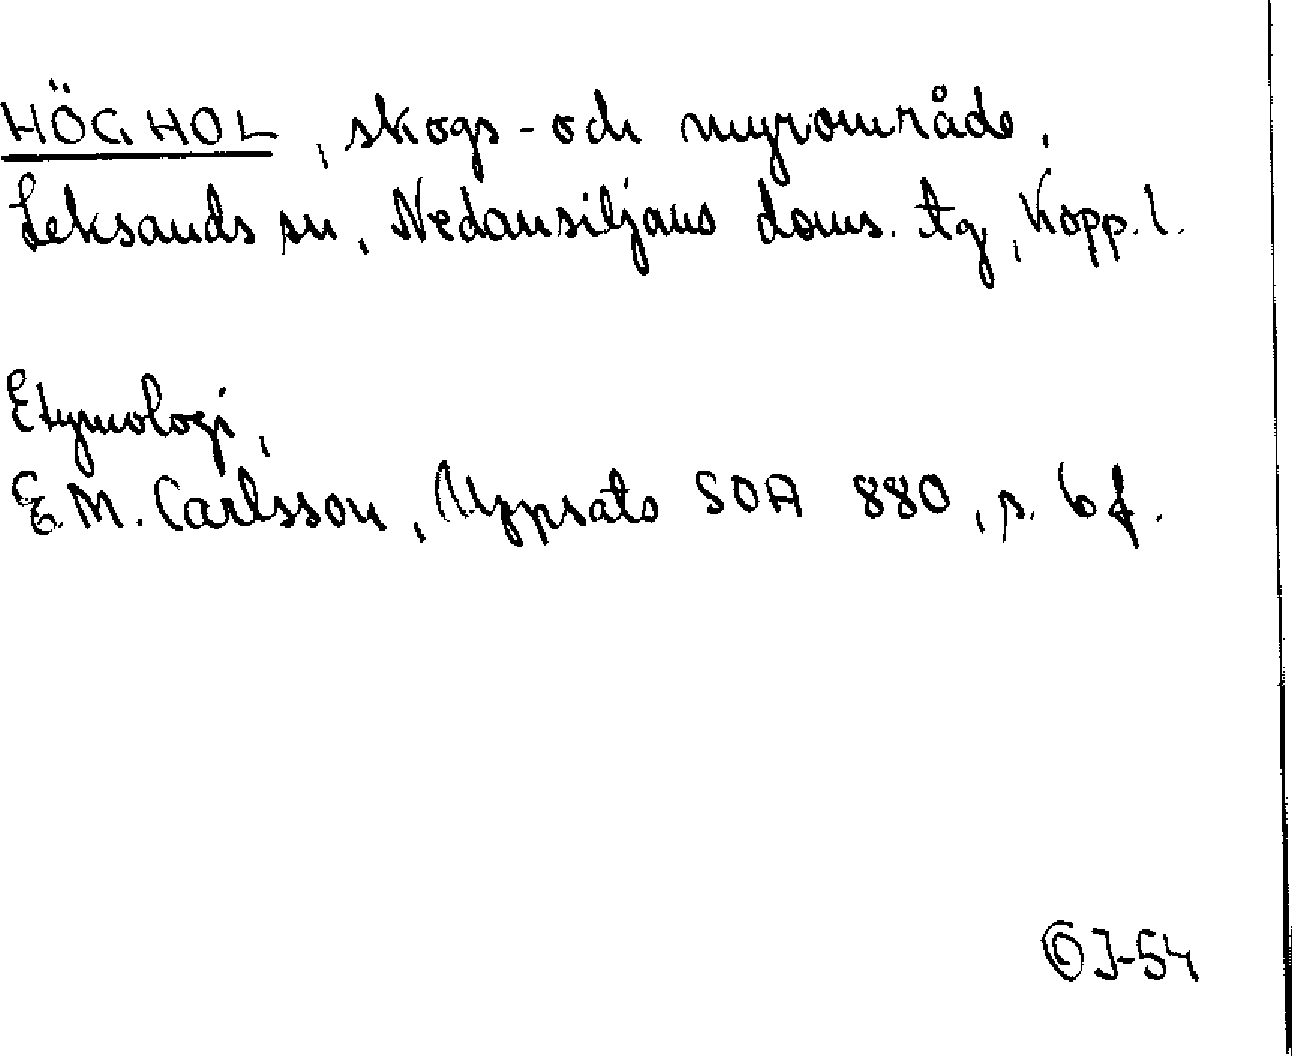 HÖGHOL, skogs- och myrområde,
Leksands sn, Nedansiljans doms. tg, Kopp. l.
Etymologi,
E M. Carlsson, Uppsats SOA 880, s. 6 f.
J-54